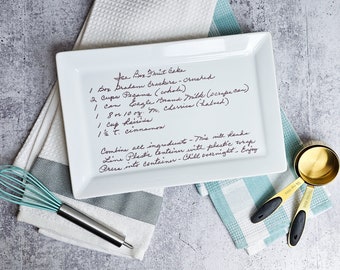 Ice Box Fruit Cake
1 Box Graham Crackers - crushed
2 Cups Pecans (whole)
1 can Eagle Brand Milk (scrape can)
1 8 or 10 oz M. Cherries (halved)
1 Cup Raisins
1 ½ t cinnamon
Combine all ingredients - This will be
Line Plastic Container with plastic wrap
Press into container - Chill overnight - Enjoy